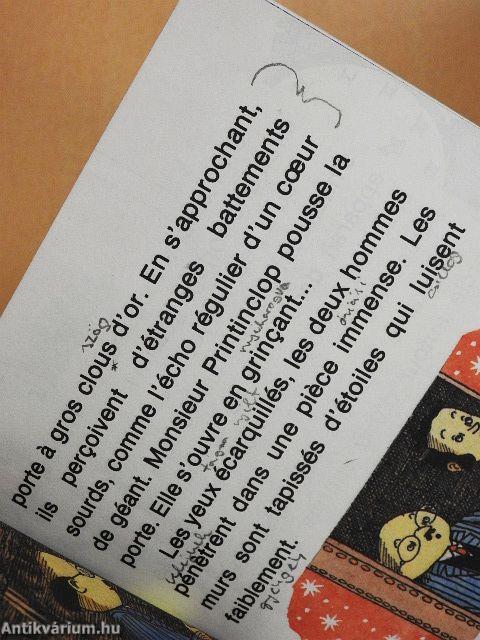 porte à gros clous d'or. En s'approchant,
szög
ils perçoivent d'étranges battements
sourds, comme l'écho régulier d'un cœur
de géant. Monsieur Printinclop pousse la
porte. Elle s'ouvre en grinçant...
Les yeux écarquillés, les deux hommes
óriási
pénètrent dans une pièce immense. Les
murs sont tapissés d'étoiles qui luisent
faiblement.
gyengén
Antikvárium.hu